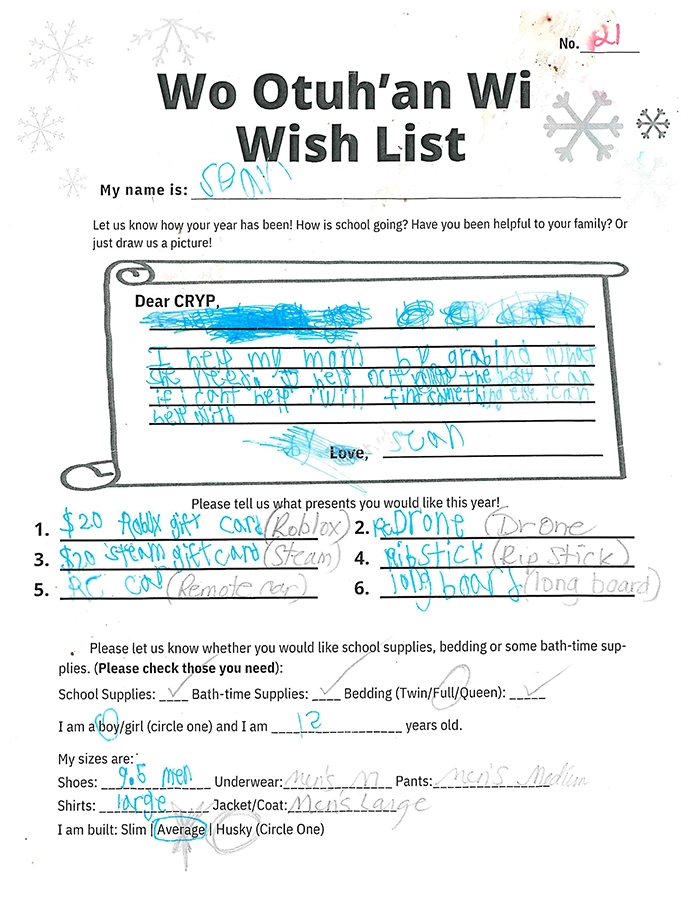 No. 21
Wo Otuh'an Wi
Wish List
My name is: Sean
Let us know how your year has been! How is school going? Have you been helpful to your family? Or
just draw us a picture!
Dear CRYP,
I help my mom by grabing what
she needs to help out the best i can
if i cant help i will find something else i can
help with
Love, sean
Please tell us what presents you would like this year!
1. $20 Roblox gift card (Roblox) 2. Drone (Drone)
3. $20 steam gift card (Steam) 4. ripstick (Rip Stick)
5. RC car (Remote car) 6. long board (long board)
Please let us know whether you would like school supplies, bedding or some bath-time sup-
plies. (Please check those you need):
School Supplies: ____ Bath-time Supplies: ____ Bedding (Twin/Full/Queen): _____
I am a boy/girl (circle one) and I am 12 years old.
My sizes are:
Shoes: 9.5 men Underwear: men's m Pants: men's Medium
Shirts: large Jacket/Coat: Men's Large
I am built: Slim | Average | Husky (Circle One)